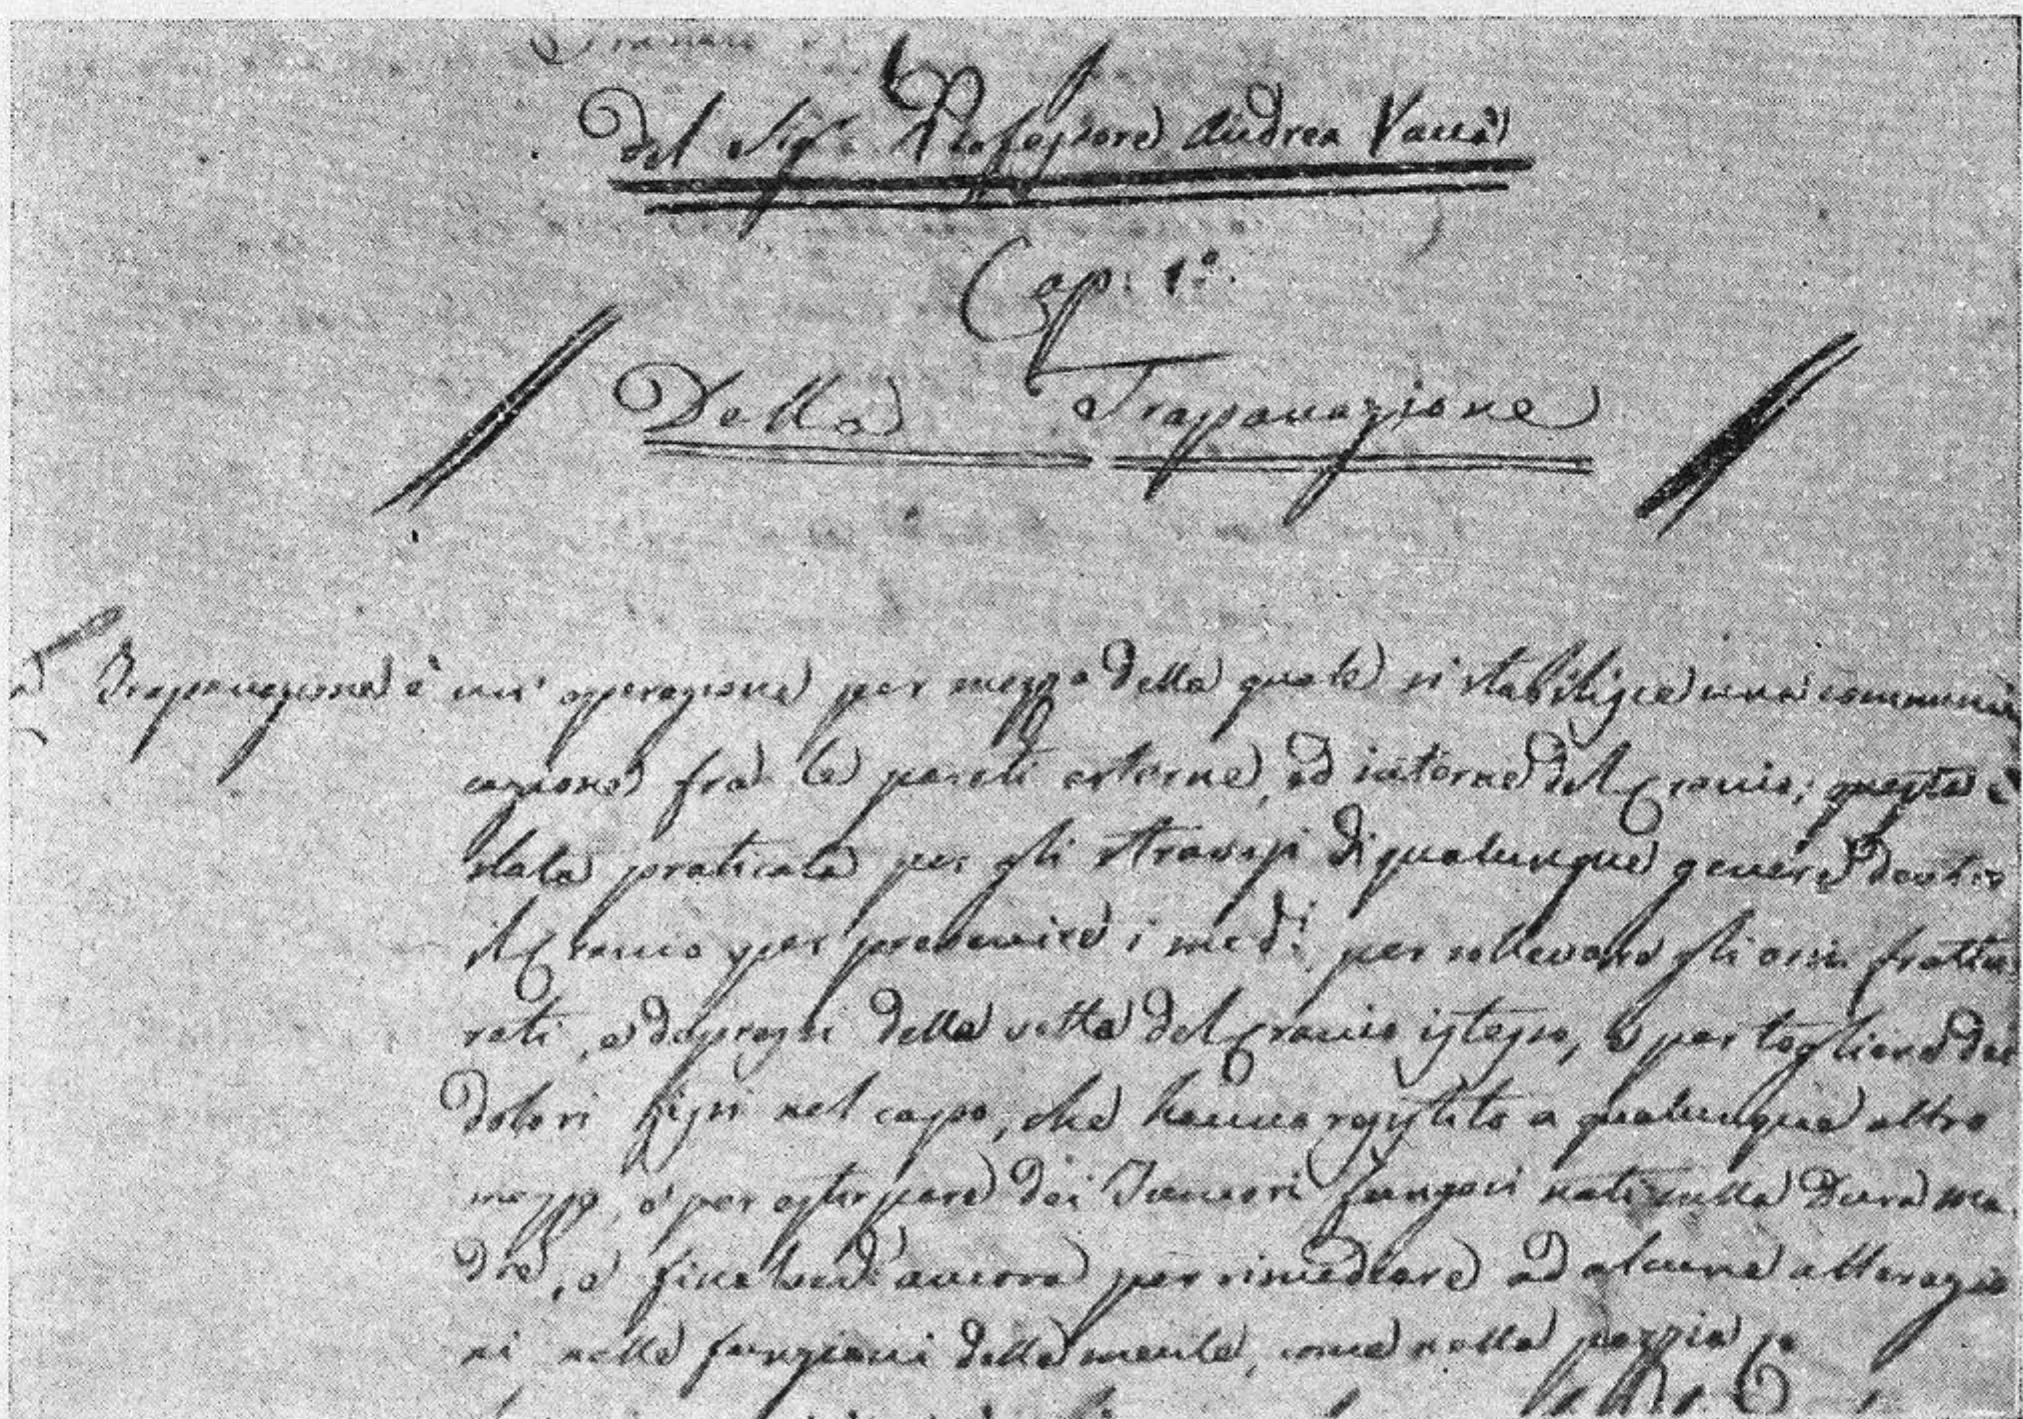 del Sig.r Professore Andrea Vaccà
Cap: 1.º
Della Trapanazione
Trapanazione è un' operazione per mezzo della quale si stabilisce una communi
cazione fra le pareti esterne, ed interne del Cranio; questa è
stata praticata per gli stravasi di qualunque genere dentro
il Cranio per prevenire i medi, per sollevare gli ossi frattu
rati, e depressi della volta del Cranio istesso, o per togliere dei
dolori fissi nel capo, che hanno resistito a qualunque altro
mezzo, o per estirpare dei Tumori fungosi nati sulla Dura ma
dre, e finalmente ancora per rimediare ad alcune alterazio
ni nelle funzioni della mente, come nella pazzia